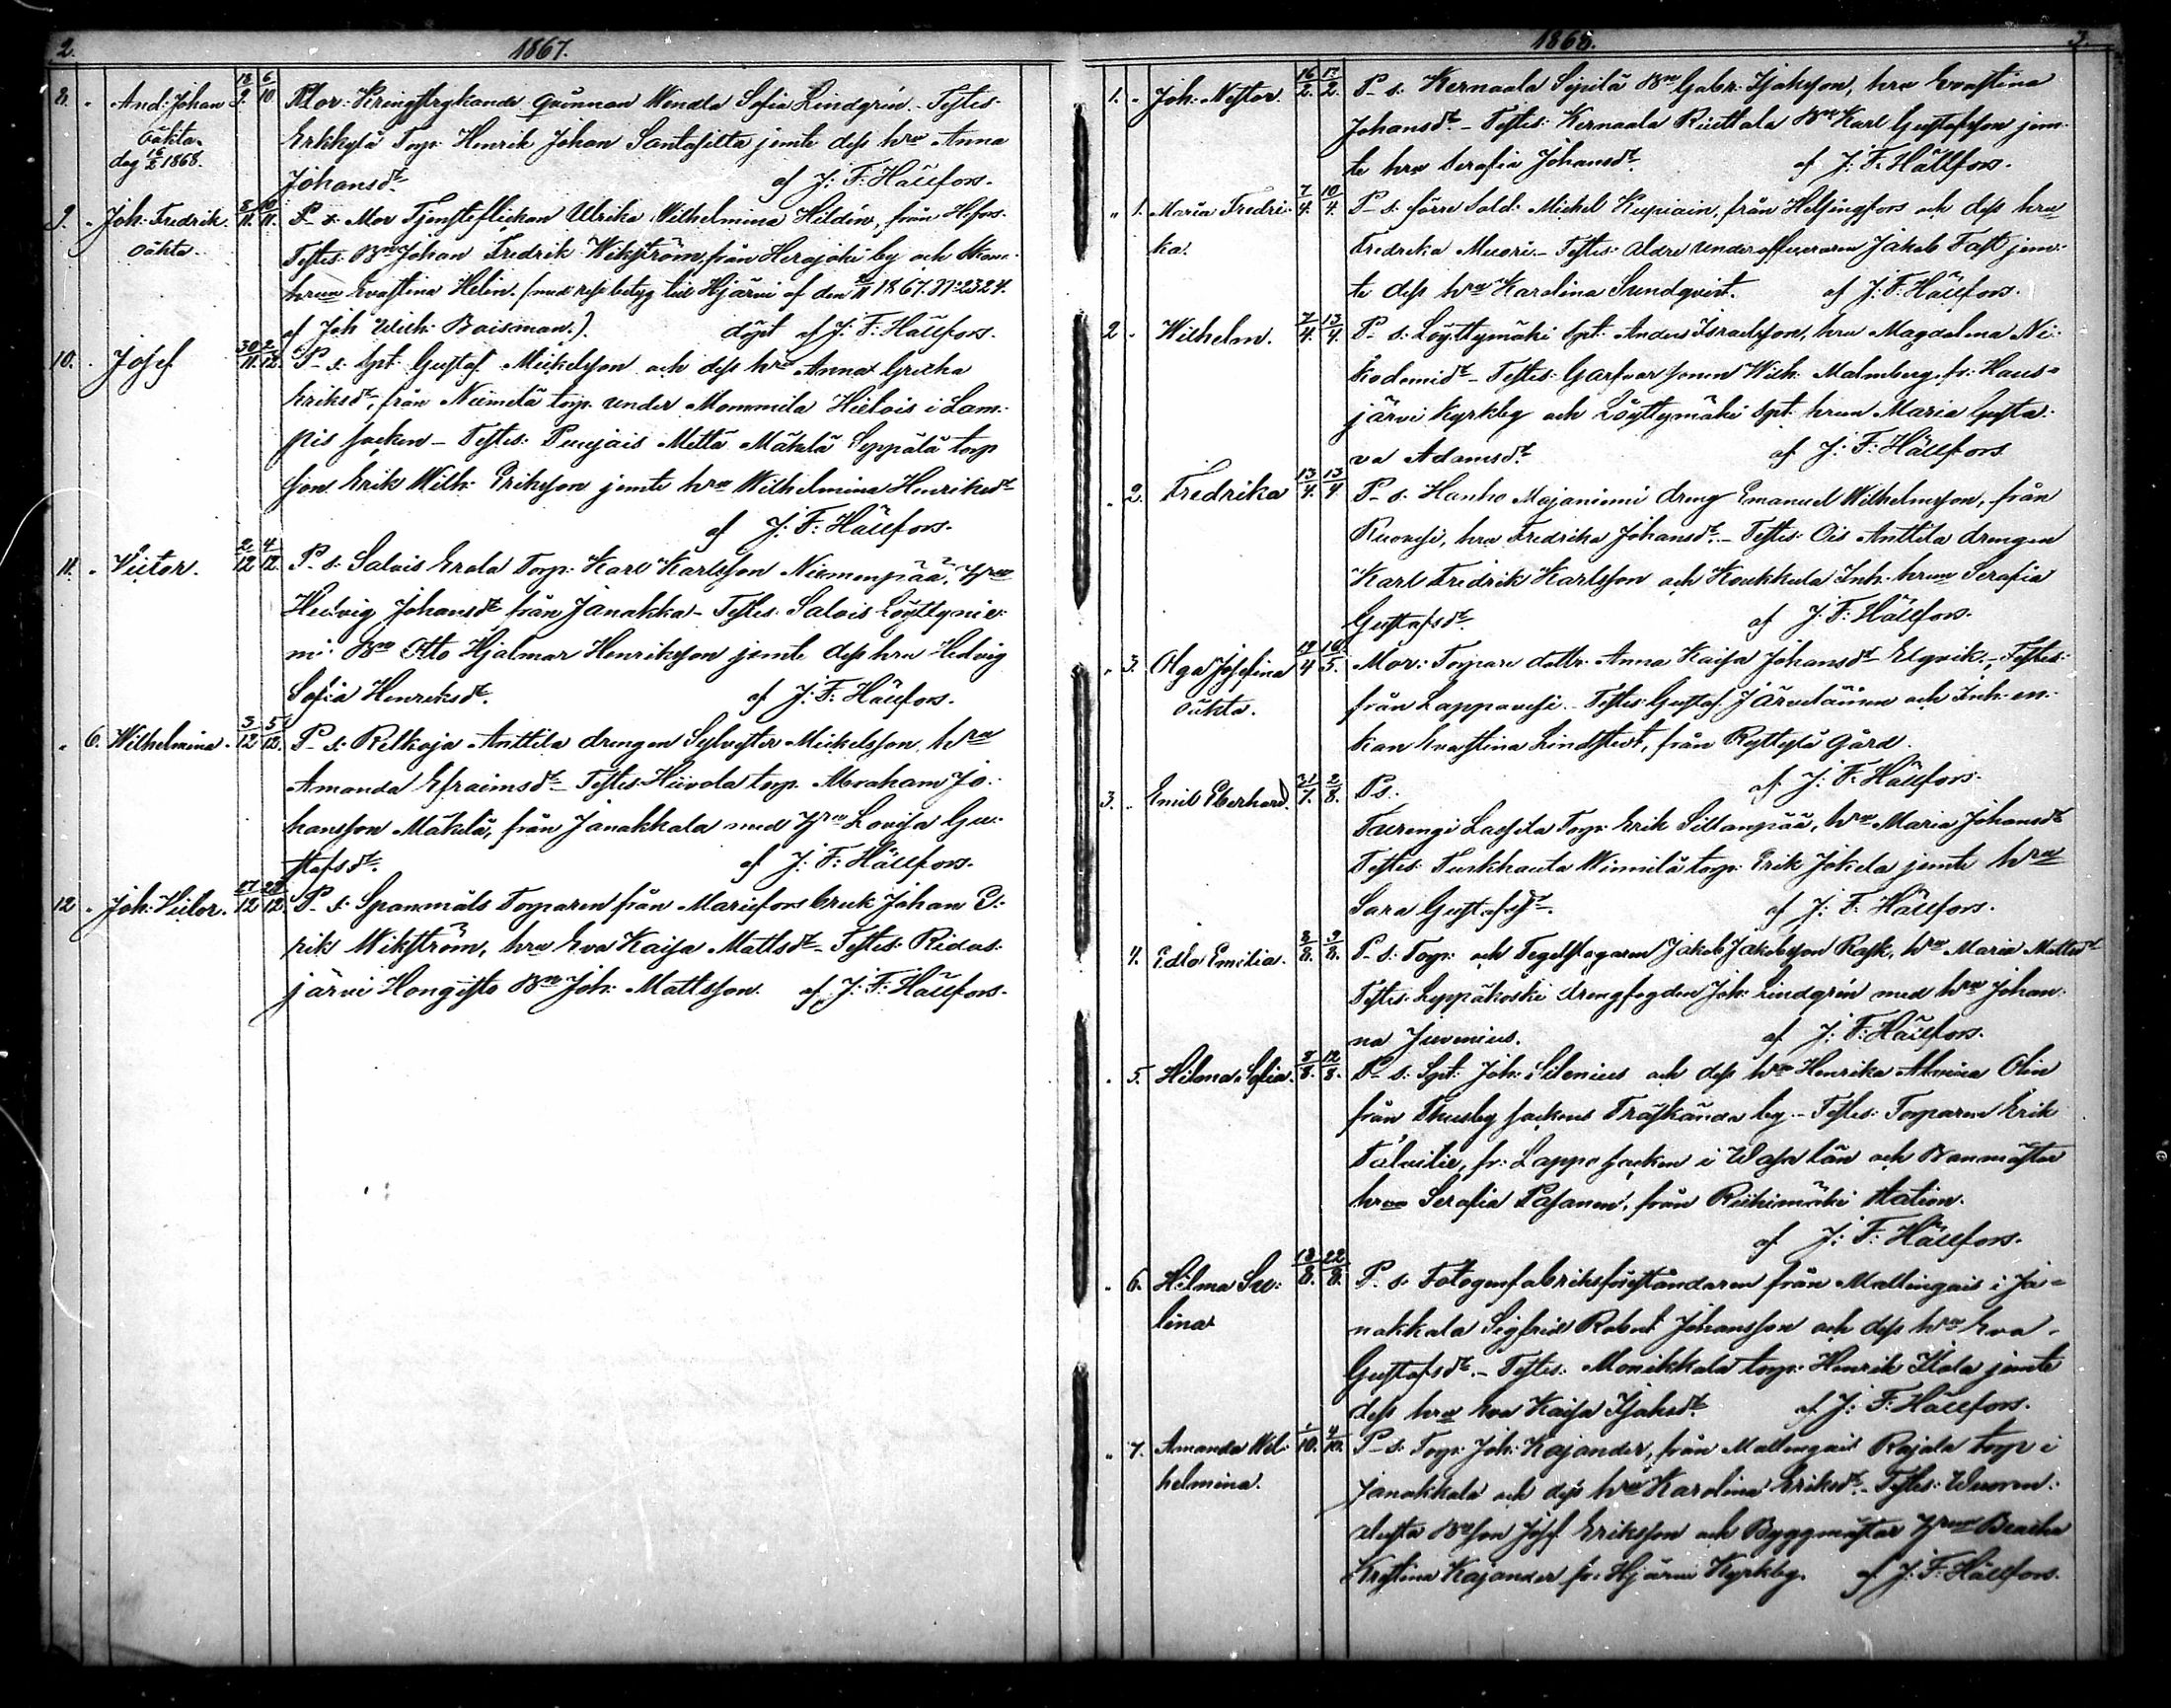 2.
1867.
8. " And: Johan 18/9. 6/10 Mor: Kringstrykande qvinnan Wendla Sofia Lindgrén. Testes:
oäkta. Erkkylä Torp: Henrik Johan Santasilta jemte dess hru Anna
dog 16/2 1868. Johansdr. af J: F: Hällfors.
9. " Joh: Fredrik. 8/11. 10/11. P_s: Mor Tjensteflickan Ulrika Wilhelmina Hildén, från Hfors.
oäkta. Testes: Bn Johan Fredrik Wikström, från Herajoki by och
hrun Evastina Helin. (med betyg till Hjärvi af den 1867. No 2324.
af Joh Wilh: Boisman.). döpt af J: F: Hällfors.
10. " Josef 30/11. 2/12. P_s: Spt: Gustaf Mickelsson och dess hru Anna Greta
Eriksdr, från Niemelä torp under Mommila Hietois i Lam:
pis socken – Testes: Puujais Mettä Mäkelä Seppälä torp
son Erik Wilh: Eriksson jemte hru Wilhelmina Henriksdr
af J: F: Hällfors.
11. " Victor. 2/12 4/12. P_s: Salois Erola Torp: Karl Karlsson Niemenpää, Hru
Hedvig Johansdr från Janakka – Testes: Salois Löyttynie:
mi Bn Otto Hjalmar Henriksson jemte dess hru Hedvig
Sofia Henriksdr. af J: F: Hällfors.
" 6. Wilhelmina. 3/12 5/12. P_s: Retkoja Anttila drengen Sylvester Mickelsson, hru
Amanda Efraimsdr – Testes: Hiivola torp. Abraham Jo:
hansson Mäkelä, från Janakkala med Hru Lovisa Gu:
stafsdr. af J: F: Hällfors.
12. " Joh: Victor. 27/12 28/12. P_s: Spanmåls Torparen från Mariefors bruk Johan E:
rik Wikström, hru Eva Kaisa Mattsdr – Testes: Ridas:
järvi Hongisto Bn Joh: Mattsson. af J: F: Hällfors.
1868.
3.
1. " Joh: Nestor. 16/2. 17/2. P_s: Kernaala Sipilä Bn Gabr: Isaksson, hru Evastina
Johansdr. – Testes: Kernaala Riettala Bn Karl Gustafsson jem
te hru Serafia Johansdr. af J: F: Hällfors.
" 1. Maria Fredri: 7/4. 10/4. P_s: förre Sold: Michel Kupiain, från Helsingfors och dess hru
ka. Fredrika Muori. – Testes: Äldre underofficeraren Jakob Fast jem:
te dess hru Karolina Sundqvist. af J: F: Hällfors.
2 " Wilhelm. 7/4. 13/4. P_s: Löyttymäki Spt: Anders Israelsson, hru Magdalena Ni:
kodemidr – Testes: Garfvar sonen Wilh: Malmberg, fr: Haus=
järvi kyrkby och Löyttymäki Spt: hrun Maria Gusta:
va Adamsdr. af J: F: Hällfors
" 2. Fredrika 13/4. 13/4 P_s: Hanho Majaniemi dreng Emanuel Wilhelmsson, från
Ruovesi, hru Fredrika Johansdr. – Testes: Ois Anttila drengen
Karl Fredrik Karlsson och Koukkula Inh: hrun Serafia
Gustafsdr. af J: F: Hällfors.
" 3. Olga Josefina 19/4 10/5. Mor: Torpare dottr. Anna Kaisa Johansdr Elgvik. – Testes:
oäkta. från Lappavesi. – Testes: Gustaf Järveläinen och Inh: en:
kan Evastina Lindstedt, från Ryttylä gård.
af J: F: Hällfors.
3. " Emil Eberhard. 31/7. 2/8. P_s:
Turengi Lassila Torp: Erik Siltanpää, hru Maria Johansdr
Testes: Turkhauta Winnilä torp: Erik Jokela jemte hru
Sara Gustafsdr. af J: F: Hällfors.
4. " Edla Emilia. 8/8. 9/8. P_s: Torp: och Tegelslagaren Jakob Jakobsson Rask, hru Maria Mattsdr
Testes: Leppäkoski drengfogden Joh: Lindgrén med hru Johan:
na Juvenius. af J: F: Hällfors.
" 5. Hilma Sofia. 8/8. 12/8. P_s: Spt: Joh: Silenius och dess hru Henrika Almina Olin
från Thusby sockens Träskända by. – Testes: Torparen Erik
Talvitie, fr: Lappo socken i Wasa län och Banmästar
hrun Serafia Pasanen, från Riihimäki station.
af J: F: Hällfors.
" 6. Hilma Su: 18/8. 22/8. P. s: Fotogenfabriksföreståndaren från Mallingais i Ja=
lina nakkala Sigfrid Robert Johansson och dess hru Eva
Gustafsdr. – Testes: Monikkala torp: Henrik Ilola jemte
dess hru Eva Kaisa Isaksdr. af J: F: Hällfors.
" 7. Amanda Wil: 1/10. 4/10. P_s: Torp: Joh: Kajander, från Mallingais Rajala torp i
helmina. Janakkala och dess hru Karolina Eriksdr. – Testes: Wuoren:
alusta Bn son Josef Eriksson och Byggmästar Hrun Beata
Kristina Kajander fr: Hjärvi Kyrkby. af J: F: Hällfors.